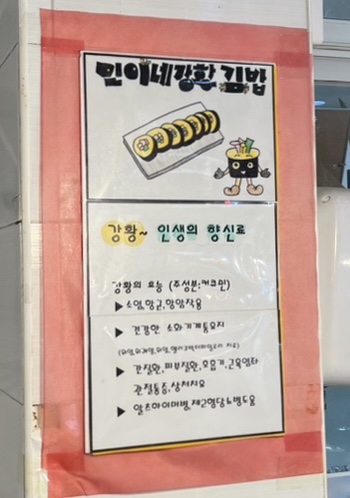 민이네강황김밥
강황~ 인생의 향신료
강황의 효능 (주성분:커큐민)
▶소염,항균,항암작용
▶ 건강한 소화기계통유지
▶간질환,피부질환,호흡기,근육염좌
관절통증,상처치유
▶ 알츠하이머병,제2형당뇨병도움